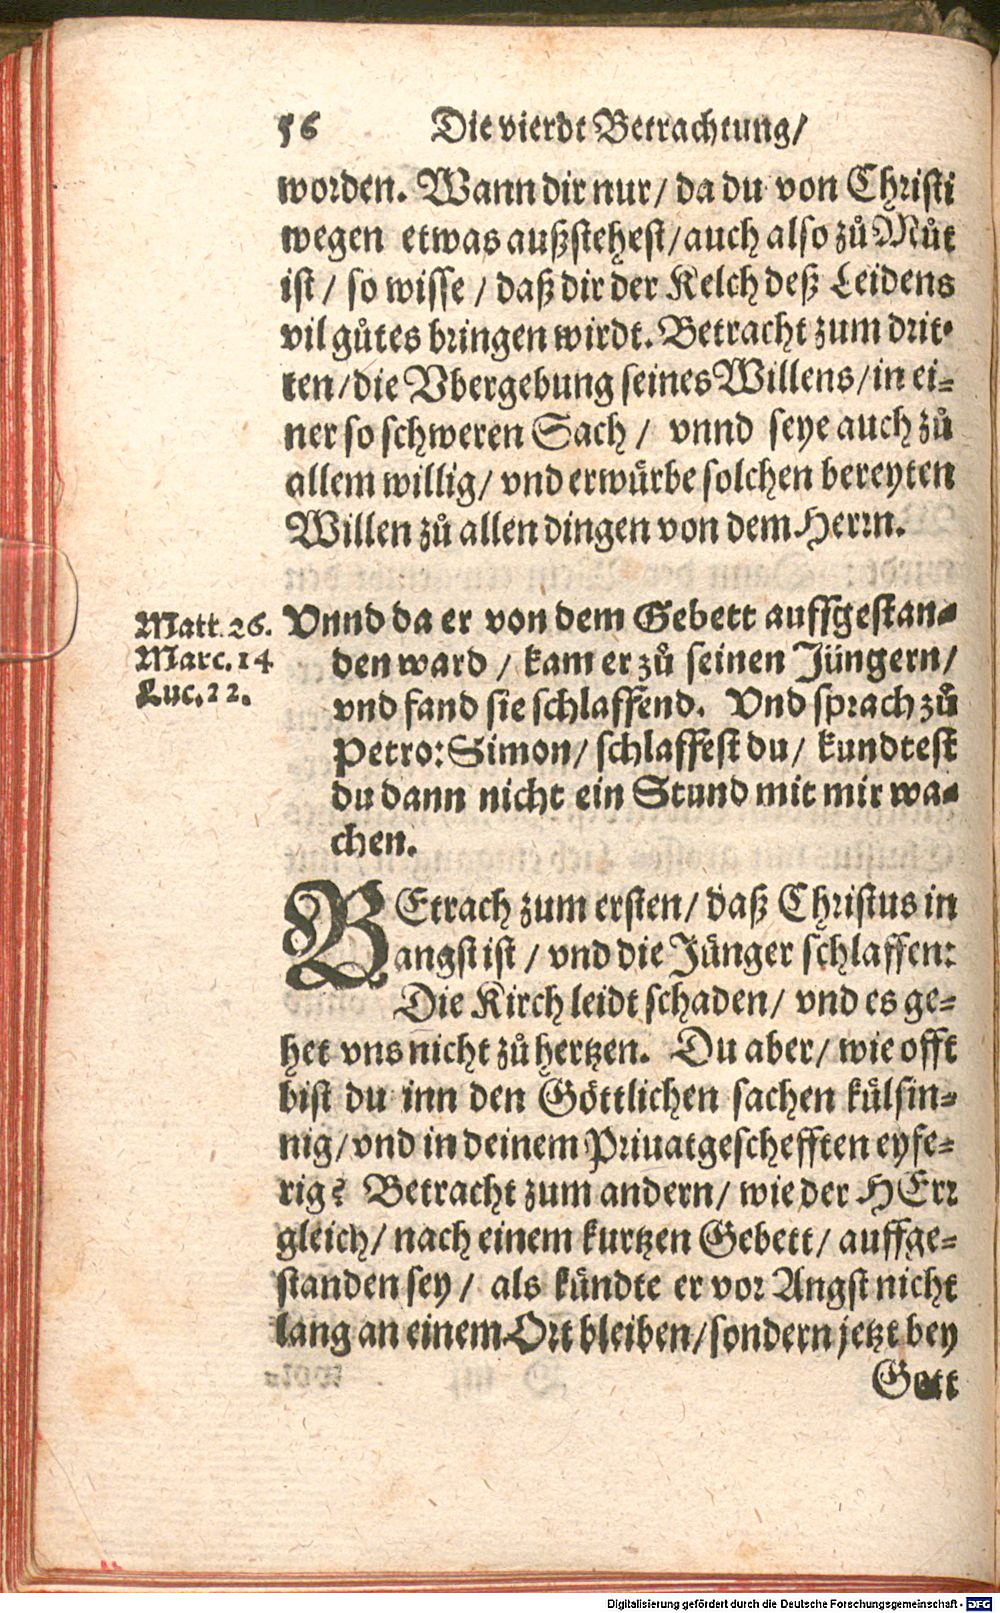 56 Die vierdt Betrachtung/
worden. Wann dir nur/ da du von Christi
wegen etwas außstehest/ auch also zů Můt
ist/ so wisse/ daß dir der Kelch deß Leidens
vil gůtes bringen wirdt. Betracht zum drit-
ten/ die Vbergebung seines Willens/ in ei-
ner so schweren Sach/ vnnd seye auch zů
allem willig/ vnd erwürbe solchen bereyten
Willen zů allen dingen von dem Herrn.
Matt. 26.
Marc. 14
Luc. 22.
Vnnd da er von dem Gebett auffgestan-
den ward/ kam er zů seinen Jüngern/
vnd fand sie schlaffend. Vnd sprach zů
Petro: Simon/ schlaffest du/ kundtest
du dann nicht ein Stund mit mir wa-
chen.
BEtrach zum ersten/ daß Christus in
angst ist/ vnd die Jünger schlaffen:
Die Kirch leidt schaden/ vnd es ge-
het vns nicht zů hertzen. Du aber/ wie offt
bist du inn den Göttlichen sachen külsin-
nig/ vnd in deinem Priuatgeschefften eyfe-
rig? Betracht zum andern/ wie der HErr
gleich/ nach einem kurtzen Gebett/ auffge-
standen sey/ als kündte er vor Angst nicht
lang an einem Ort bleiben/ sondern jetzt bey
Gott
Digitalisierung gefördert durch die Deutsche Forschungsgemeinschaft - DFG